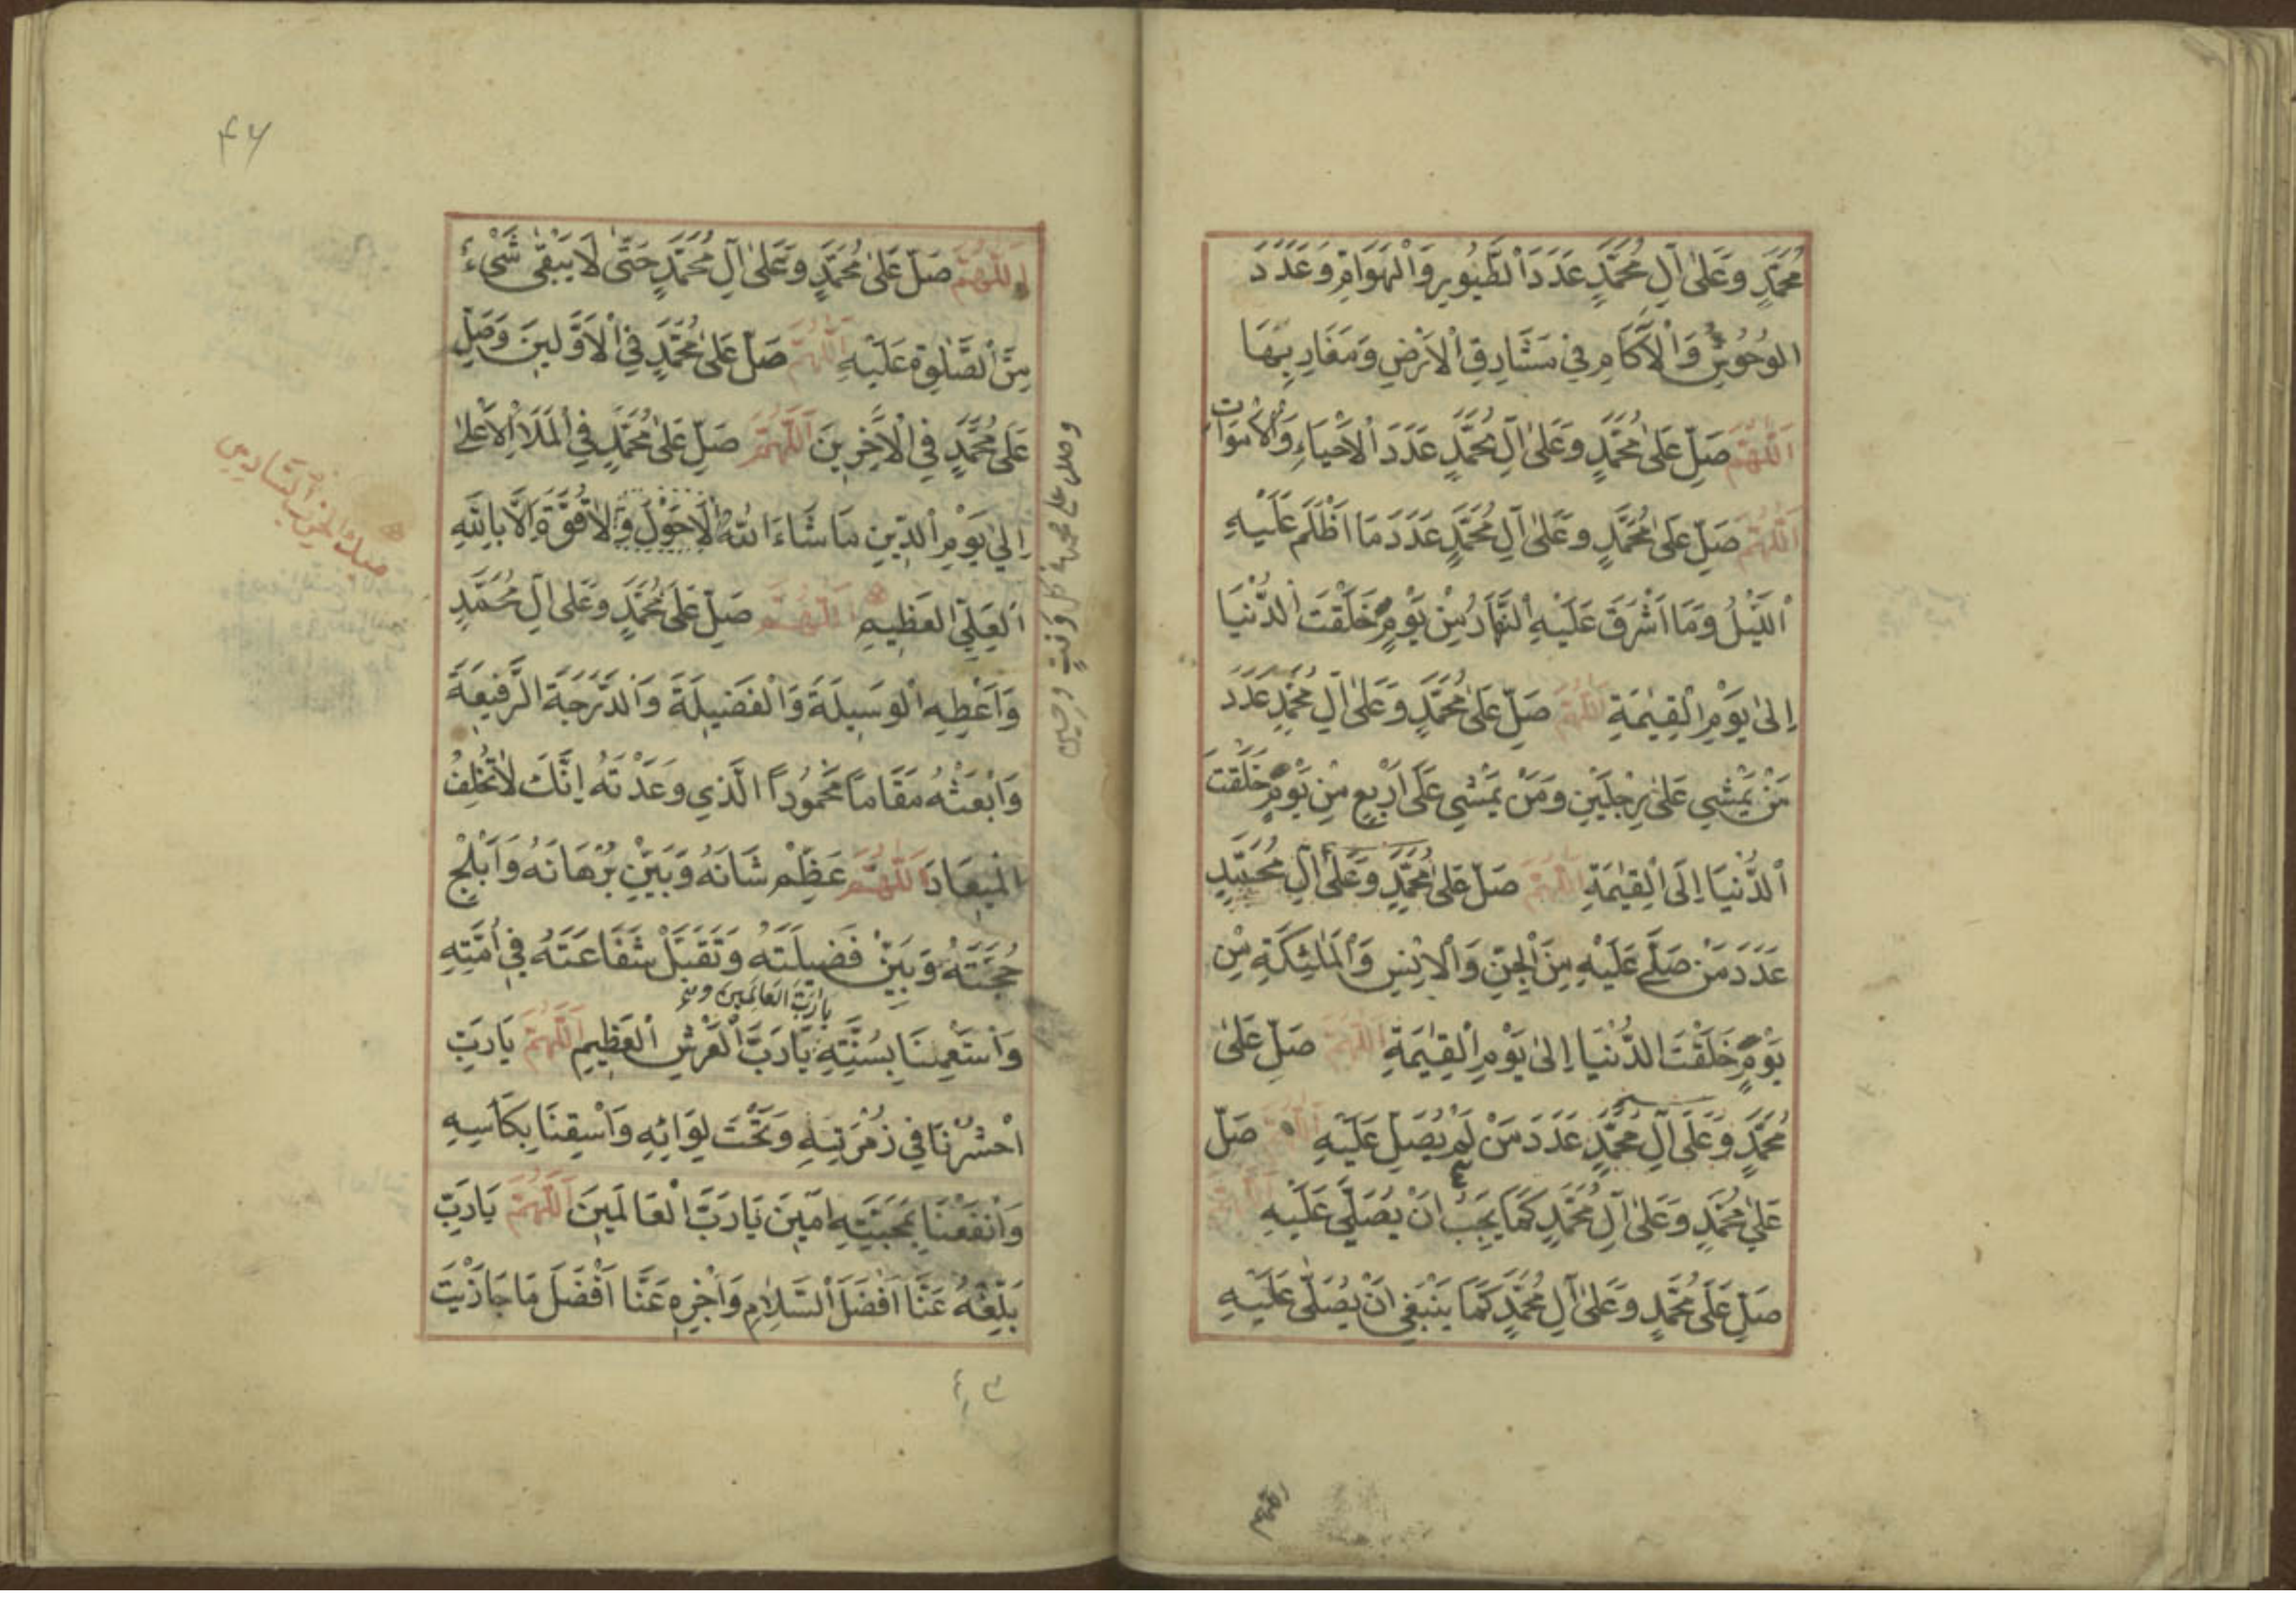 مُحَمَّدٍ وَعَلٰى آلِ مُحَمَّدٍ عَدَدَ الطُّيُورِ وَالْهَوَامِّ وَعَدَدَ
الْوُحُوشِ وَالْاٰكَامِ فِي مَشَارِقِ الْاَرْضِ وَمَغَارِبِهَا
اَللّٰهُمَّ صَلِّ عَلٰى مُحَمَّدٍ وَعَلٰى آلِ مُحَمَّدٍ عَدَدَ الْاَحْيَاءِ وَالْاَمْوَاتِ
اَللّٰهُمَّ صَلِّ عَلٰى مُحَمَّدٍ وَعَلٰى آلِ مُحَمَّدٍ عَدَدَ مَا اَظْلَمَ عَلَيْهِ
الَّيْلُ وَمَا اَشْرَقَ عَلَيْهِ النَّهَارُ مِنْ يَوْمٍ خَلَقْتَ الدُّنْيَا
اِلٰى يَوْمِ الْقِيٰمَةِ اَللّٰهُمَّ صَلِّ عَلٰى مُحَمَّدٍ وَعَلٰى آلِ مُحَمَّدٍ عَدَدَ
مَنْ يَمْشِي عَلٰى رِجْلَيْنِ وَمَنْ يَمْشِي عَلٰى اَرْبَعٍ مِنْ يَوْمٍ خَلَقْتَ
الدُّنْيَا اِلَى الْقِيٰمَةِ اَللّٰهُمَّ صَلِّ عَلٰى مُحَمَّدٍ وَعَلٰى آلِ مُحَمَّدٍ
عَدَدَ مَنْ صَلّٰى عَلَيْهِ مِنَ الْجِنِّ وَالْاِنْسِ وَالْمَلٰئِكَةِ مِنْ
يَوْمٍ خَلَقْتَ الدُّنْيَا اِلٰى يَوْمِ الْقِيٰمَةِ اَللّٰهُمَّ صَلِّ عَلٰى
مُحَمَّدٍ وَعَلٰى آلِ مُحَمَّدٍ عَدَدَ مَنْ لَمْ يُصَلِّ عَلَيْهِ اَللّٰهُمَّ صَلِّ
عَلٰى مُحَمَّدٍ وَعَلٰى آلِ مُحَمَّدٍ كَمَا يَجِبُ اَنْ يُصَلّٰى عَلَيْهِ اَللّٰهُمَّ
صَلِّ عَلٰى مُحَمَّدٍ وَعَلٰى آلِ مُحَمَّدٍ كَمَا يَنْبَغِي اَنْ يُصَلّٰى عَلَيْهِ
۴۶
اَللّٰهُمَّ صَلِّ عَلٰى مُحَمَّدٍ وَعَلٰى آلِ مُحَمَّدٍ حَتّٰى لَا يَبْقٰى شَيْءٌ
مِنَ الصَّلٰوةِ عَلَيْهِ اَللّٰهُمَّ صَلِّ عَلٰى مُحَمَّدٍ فِي الْاَوَّلِينَ وَصَلِّ
عَلٰى مُحَمَّدٍ فِي الْاٰخِرِينَ اَللّٰهُمَّ صَلِّ عَلٰى مُحَمَّدٍ فِي الْمَلَاِ الْاَعْلٰى
اِلٰى يَوْمِ الدِّينِ مَا شَاءَ اللّٰهُ لَا حَوْلَ وَلَا قُوَّةَ اِلَّا بِاللّٰهِ
الْعَلِيِّ الْعَظِيمِ اَللّٰهُمَّ صَلِّ عَلٰى مُحَمَّدٍ وَعَلٰى آلِ مُحَمَّدٍ
وَاَعْطِهِ الْوَسِيلَةَ وَالْفَضِيلَةَ وَالدَّرَجَةَ الرَّفِيعَةَ
وَابْعَثْهُ مَقَامًا مَحْمُودًا الَّذِي وَعَدْتَهُ اِنَّكَ لَا تُخْلِفُ
الْمِيعَادَ اَللّٰهُمَّ عَظِّمْ شَانَهُ وَبَيِّنْ بُرْهَانَهُ وَاَبْلِجْ
حُجَّتَهُ وَبَيِّنْ فَضِيلَتَهُ وَتَقَبَّلْ شَفَاعَتَهُ فِي اُمَّتِهِ
يَارَبَّ الْعَالَمِينَ و
وَاسْتَعْمِلْنَا بِسُنَّتِهِ يَارَبَّ الْعَرْشِ الْعَظِيمِ اَللّٰهُمَّ يَارَبِّ
احْشُرْنَا فِي زُمْرَتِهِ وَتَحْتَ لِوَائِهِ وَاسْقِنَا بِكَاْسِهِ
وَانْفَعْنَا بِمَحَبَّتِهِ اٰمِينَ يَارَبَّ الْعَالَمِينَ اَللّٰهُمَّ يَارَبِّ
بَلِّغْهُ عَنَّا اَفْضَلَ السَّلَامِ وَاجْزِهِ عَنَّا اَفْضَلَ مَا جَازَيْتَ
وصل على محمد في كل وقت وحين
الحزب السادس